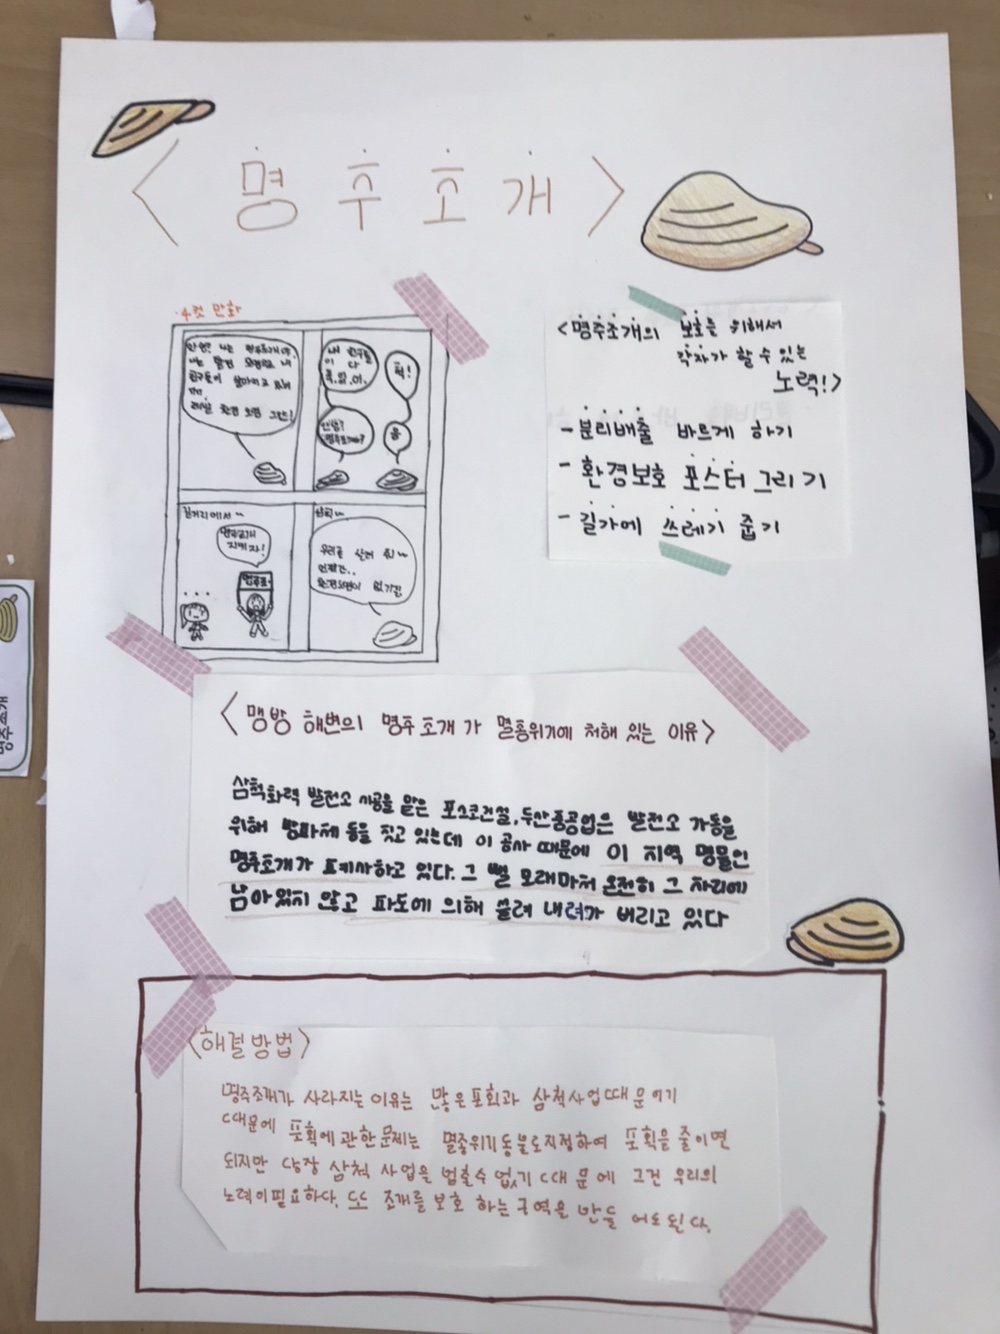 <명주조개>
·4컷 만화
안녕? 나는 명주조개야.
나는 환경 오염으로 내
친구들이 살아지고 있어
내 친구들
이 다
죽.었.어.
헉!
안녕?
명주조개야?
응
길거리에서~
명주조개
지키자!
...
우리를 살려 줘~
언젠간..
환경오염이 없기길!
<명주조개의 보호를 위해서
각자가 할 수 있는
노력!>
- 분리배출 바르게 하기
- 환경보호 포스터 그리기
- 길가에 쓰레기 줍기
<맹방 해변의 명주조개가 멸종위기에 처해 있는 이유>
삼척화력 발전소 시공을 맡은 포스코건설, 두산중공업은 발전소 가동을
위해 방파제 등을 짓고 있는데 이 공사 때문에 이 지역 명물인
명주조개가 떼죽사하고 있다. 그 뻘 모래마저 온전히 그 자리에
남아있지 않고 파도에 의해 쓸려 내려가 버리고 있다
<해결방법>
명주조개가 사라지는 이유는 많은 포획과 삼척사업때문이기
때문에 포획에 관한 문제는 멸종위기동물로지정하여 포획을 줄이면
되지만 당장 삼척 사업을 멈출수 없기 때문에 그건 우리의
노력이필요하다. 또 조개를 보호 하는 구역을 만들 어도된다.
명주조개